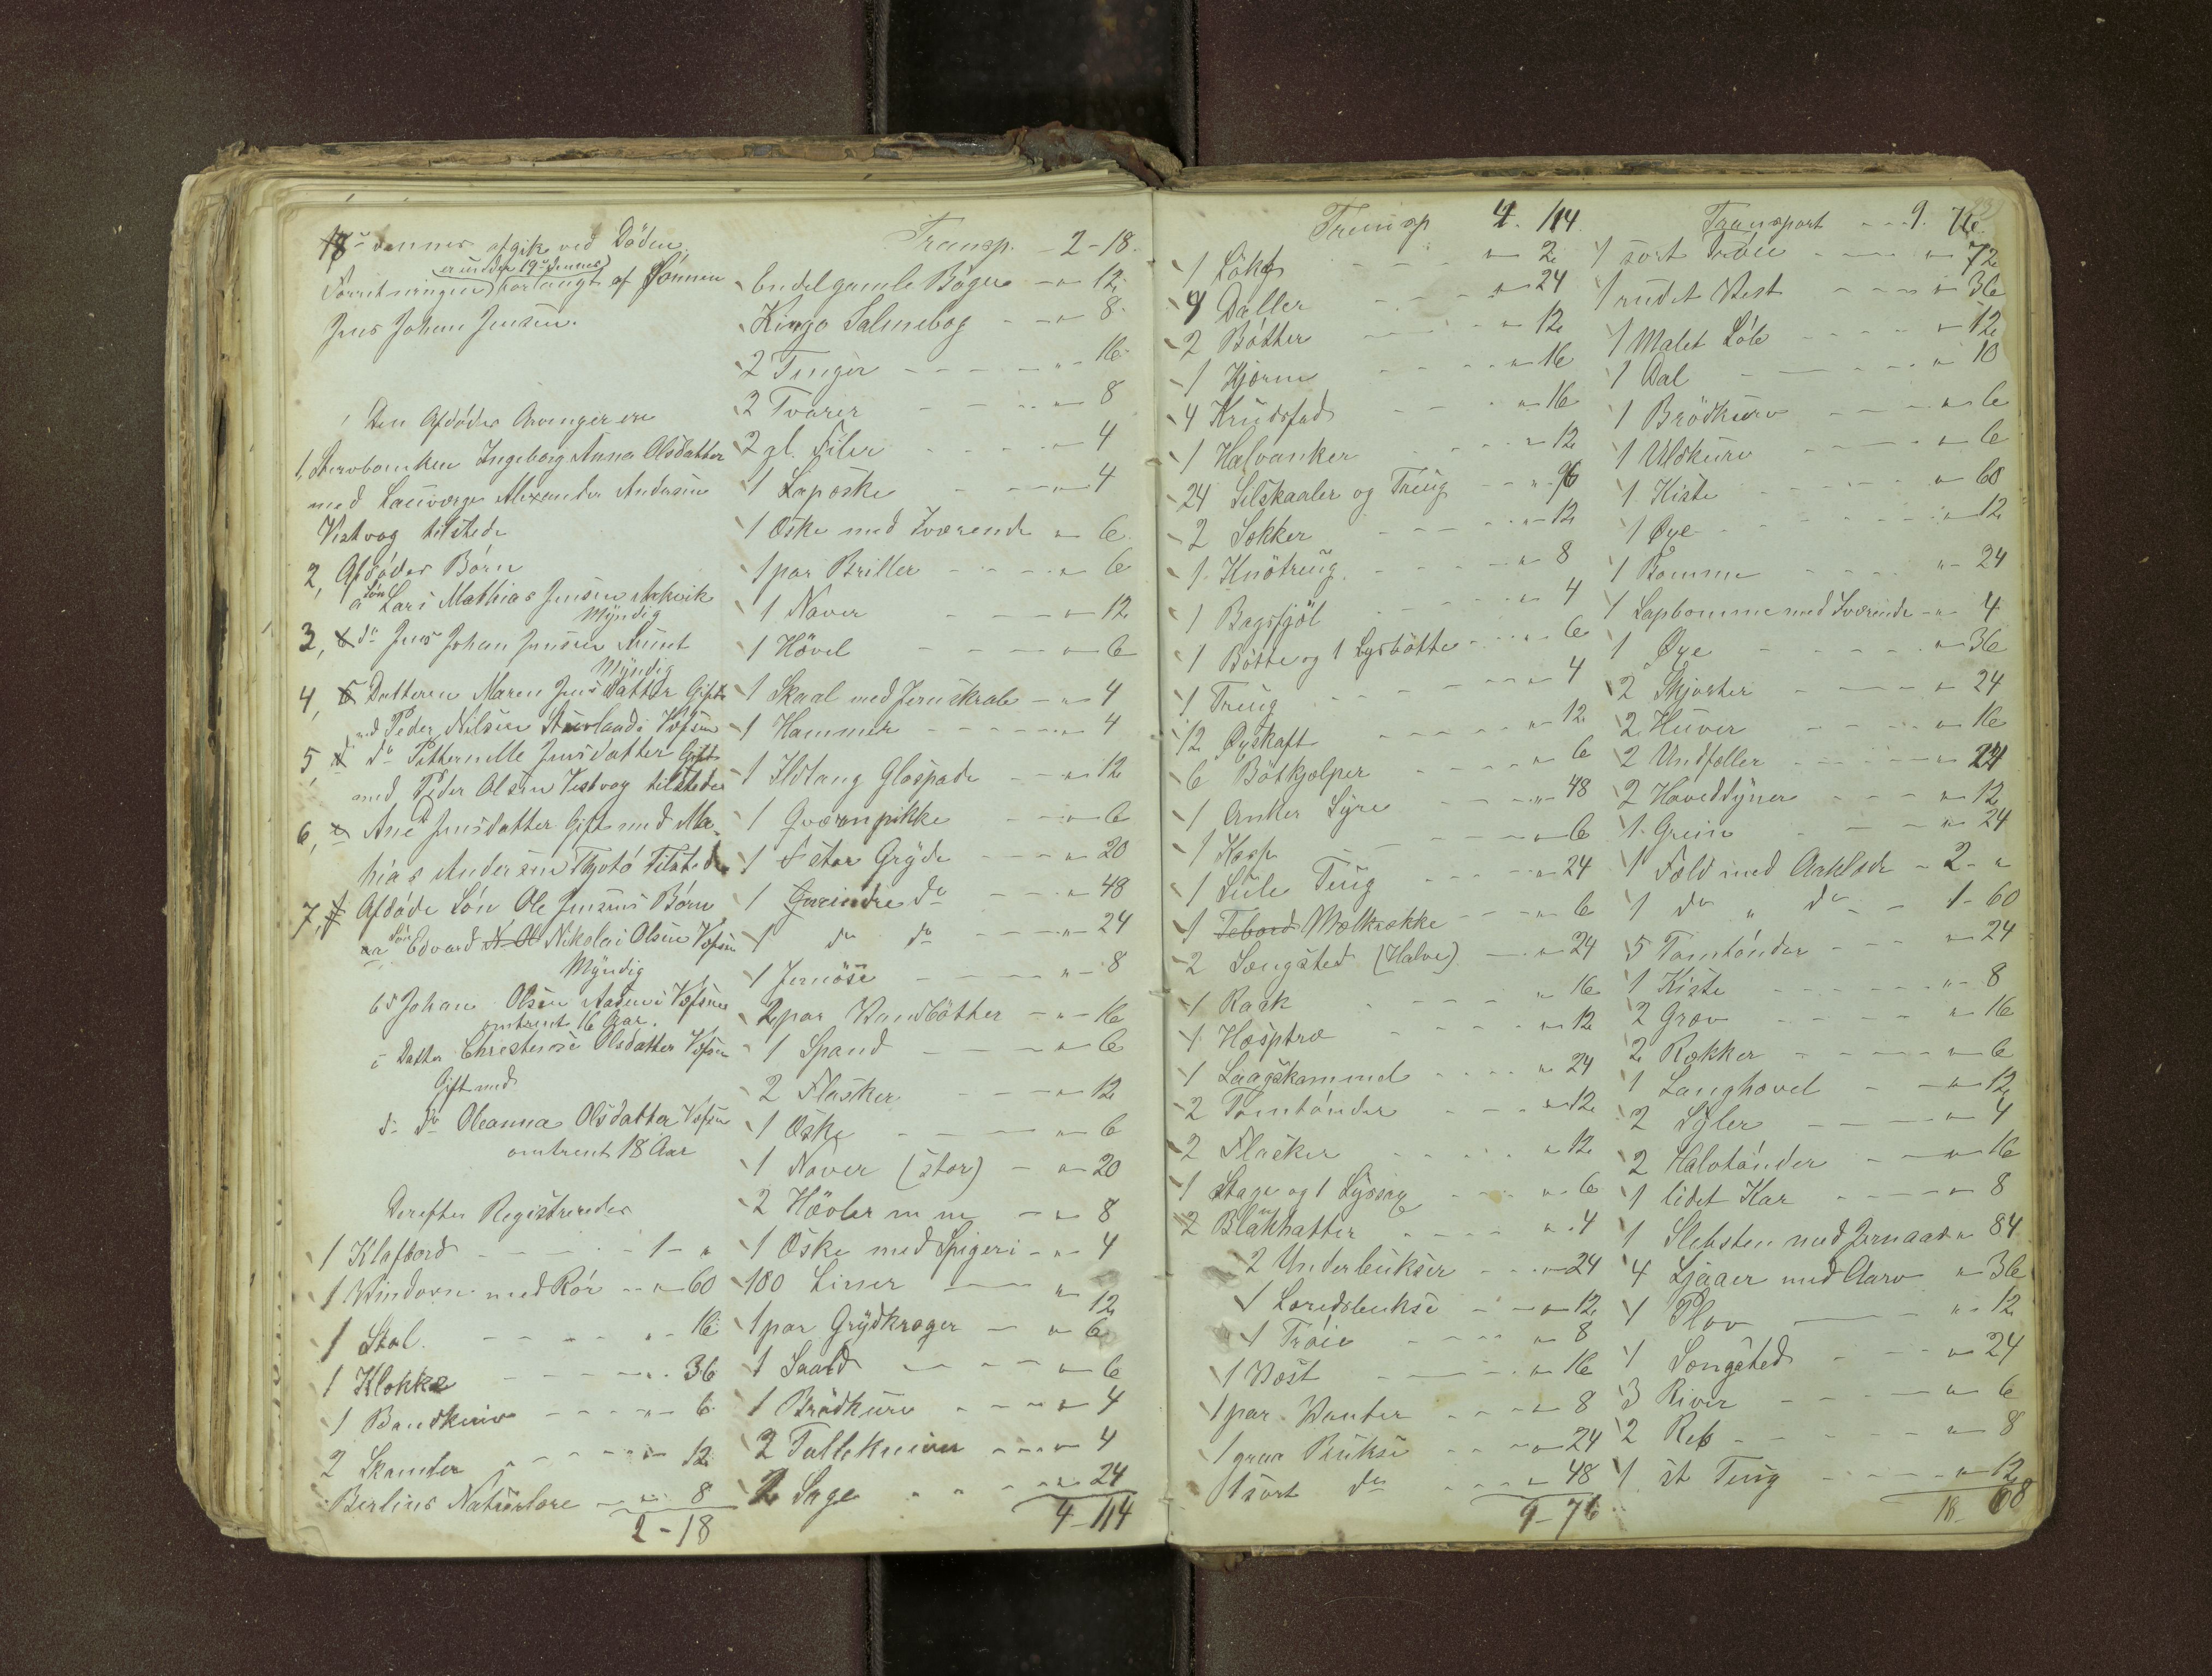 18de dennes afgik ved Döden
er under 19de dennes
Forretningen forlangt af Sönnen
Jens Johan Jensen.
Den Afdödes Arvinger ere
1, Stervboenken Ingeborg Anna Olsdatter
med Laugværge Alexander Andersen
Vestvog tilstede
2, Afdödes Börn
a Sön Lars Mathias Jensen
Myndig
3, do Jens Johan Jensen
Myndig
4, Datteren Maren Jensdatter Gift
med Peder Nilsen Vefsen
5, do Petternelle Jensdatter Gift
med Peder Olsen Vestvog tilstede
6, Ane Jensdatter Gift med Ma-
hias Andersen Tilstede
7, Afdöde Sön Ole Jensens Börn
a Sön Edvard Nikolai Olsen Vefsen
Myndig
b do Johan Olsen Vefsen
omtrent 16 Aar.
c Datter Christense Olsdatter Vefsen
Gift med
d do Oleanna Olsdatter Vefsen
omtrent 18 Aar
Derefter Registreredes
1 Klafbord - - - 1 - "
1 Vindovn med Rör - - " 60
1 Stol - - - " 16
1 Klokke - - - " 36
1 Baandkniv - - - " 6
2 Skamler - - - " 12
Berlins Naturlære - " 8
2 - 18
Transp. - 2 - 18.
Endel gamle Böger - " 12
Kingo Salmebog - - " 8
2 Tenger - - - " 16
2 Tvarer - - - " 8
2 gl. Filer - - - " 4
1 Laposke - - - " 4
1 Oske med Iværende " 6
1 par Briller - - - " 6
1 Naver - - - " 12
1 Hövel - - - " 6
1 Skaal med Jernskrab - " 4
1 Hammer - - - " 4
1 Ildtang Glospade - - " 12
1 Qværnpikke - - " 6
1 stor Gryde - - - " 20
1 mindre do - - - " 48
1 do do - - - " 24
1 Jernöse - - - " 8
2 par Vandbötter - " - 16
1 Spand - - - " 6
2 Flasker - - - " 12
1 Oske - - - " 6
1 Naver (stor) - " 20
2 Hövler m m - " 8
1 Oske med Spigeri - " 4
100 Liner - - " 12
1 par Grydkroger - " 6
1 Saald - - - " 6
1 Brödkurv - - - " 4
2 Tolleknive - - - " 4
2 Sage - - - " 24
4 - 114
Transp 4. 114
1 Lökt - - - " 2
4 Daller - - - " 24
2 Bötter - - - " 12
1 Kjerne - - - " 16
4 Krudsfad - - - " 16
1 Halvanker - - - " 12
24 Silskaaler og Traug - - " 96
2 Sekker - - - " 12
1 Knötraug - - - " 8
1 Bagsfjöl - - - " 4
1 Bötte og 1 Lysbötte - - " 6
1 Traug - - - " 4
12 Øyskaft - - - " 12
6 Bötkjelper - - - " 6
1 Anker Syre - - - " 48
1 Kasp - - - " 6
1 Sule Teug - - - " 24
1 Mælkrække - - - " 6
2 Sengsted (Halve) - - " 24
1 Raak - - - " 16
1 Hesptræ - - - " 12
1 Laagskammel - - - " 24
2 Tomtönder - - - " 12
2 Flasker - - - " 12
1 Stage og 1 Lyssax - - " 6
2 Blankhatter - - - " 4
2 Underbukser - - - " 24
1 Læredsbukse - - " 12
1 Tröie - - - " 8
1 Vest - - - " 16
1 par Vanter - - - " 8
1 graa Bukse - - " 24
1 sort do - - - " 48
9 - 76
Transport - - 9. 76
1 sort Tröie - - - " 72
1 rudet Vest - - - " 36
1 Malet Löb - - - " 12
1 Dal - - - " 10
1 Brödkurv - - - " 6
1 Uldkurv - - - " 6
1 Kiste - - - " 60
1 Øye - - - " 12
1 Bomme - - - " 24
1 Lapbomme med Iværende - " 4
1 Øye - - - " 36
2 Skjorter - - - " 24
2 Huver - - - " 16
2 Undfeller - - - " 24
2 Hoveddyner - - - " 12
1 Greiie - - - " 24
1 Feld med Aaklæde - 2 - "
1 do " do - 1 - 60
5 Tomtönder - - - " 24
1 Kiste - - - " 8
2 Grev - - - " 16
2 Rokker - - - " 6
1 Langhovel - - " 12
2 Syler - - - " 4
2 Halvtönder - - " 16
1 lidet Kar - - - " 8
1 Slebsten med Jernaas " 84
4 Ljaaer med Aarv " 36
1 Plov - - - " 12
1 Sengsted - - - " 24
3 River - - - " 6
2 Reb - - - " 8
1 st Teug - - - " 12
18 - 68